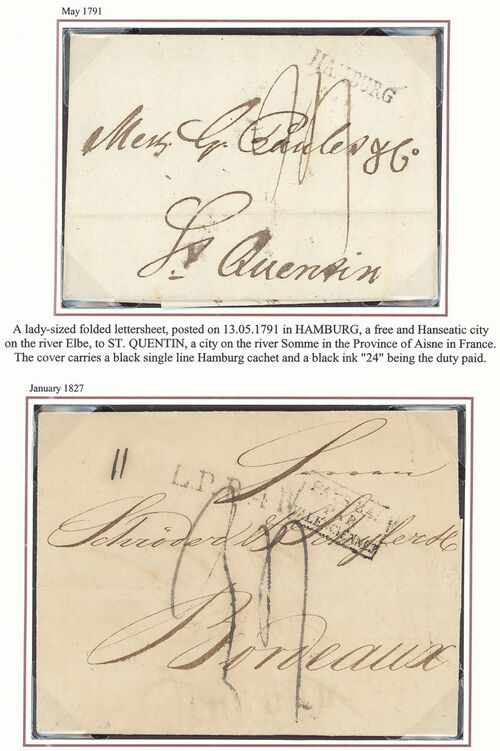 May 1791
HAMBURG
24
Messrs G. Paules & Co
St Quentin
A lady-sized folded lettersheet, posted on 13.05.1791 in HAMBURG, a free and Hanseatic city
on the river Elbe, to ST. QUENTIN, a city on the river Somme in the Province of Aisne in France.
The cover carries a black single line Hamburg cachet and a black ink "24" being the duty paid.
January 1827
L.P.B.4.R
PAYS-BAS
PAR
VALENCIENNES
Schröder &
Bordeaux